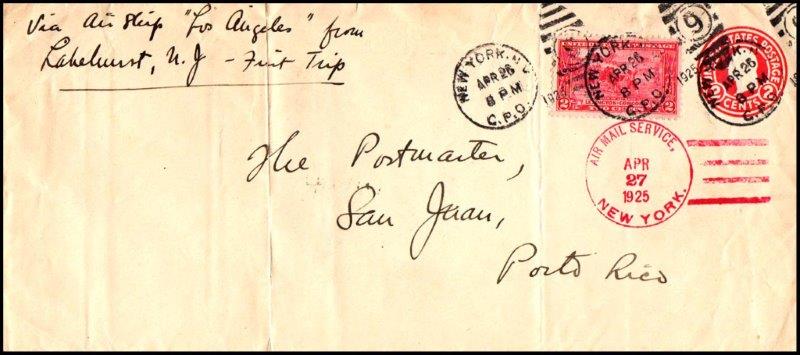 Via Air Ship "Los Angeles" from
Lakehurst, N.J - First Trip
NEW YORK, N.Y.
APR 26
8 PM
G.P.O.
1925
NEW YORK, N.Y.
APR 26
8 PM
G.P.O.
1925
9
2
UNITED STATES POSTAGE
2 CENTS 2
AIR MAIL SERVICE,
APR
27
1925
NEW YORK.
The Postmaster,
San Juan,
Porto Rico